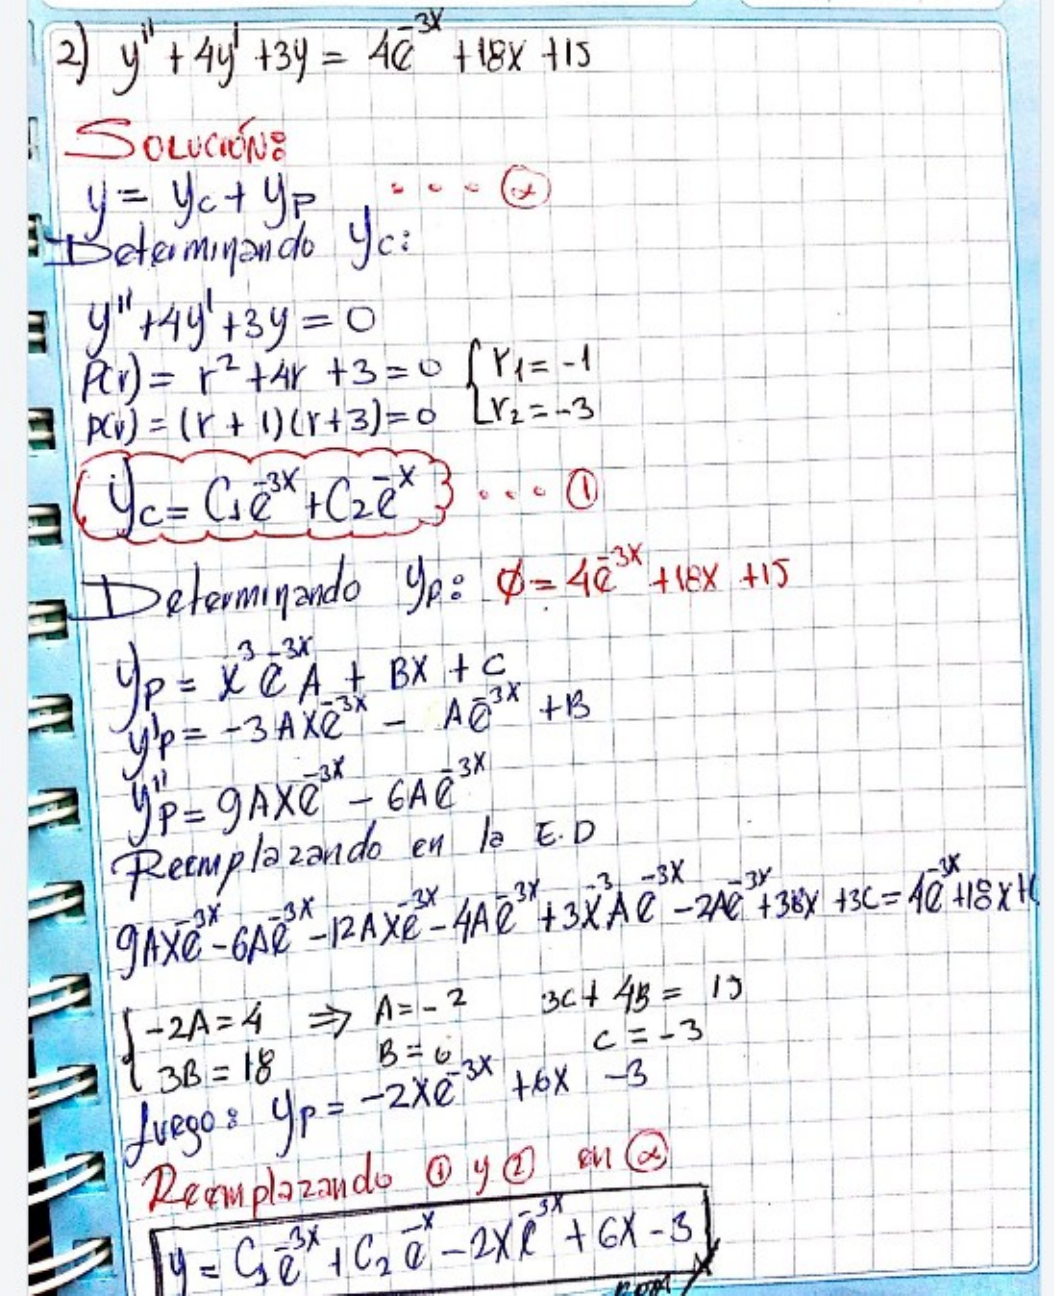 2) y'' + 4y' + 3y = 4e^-3x + 18x + 15
SOLUCIÓN:
y = yc + yp ... (α)
Determinando yc:
y'' + 4y' + 3y = 0
P(r) = r² + 4r + 3 = 0 { r1 = -1
p(r) = (r + 1)(r + 3) = 0 r2 = -3
yc = C1e^-3x + C2e^-x ... (1)
Determinando yp: ϕ = 4e^-3x + 18x + 15
yp = x^3 e^-3x A + Bx + C
y'p = -3Axe^-3x - Ae^-3x + B
y''p = 9Axe^-3x - 6Ae^-3x
Reemplazando en la E.D
9Axe^-3x - 6Ae^-3x - 12Axe^-3x - 4Ae^-3x + 3x^-3 Ae^-3x - 2Ae^-3x + 3Bx + 3C = 4e^-3x + 18x +
{ -2A = 4 ⇒ A = -2 3C + 4B = 15
3B = 18 B = 6 C = -3
Luego: yp = -2xe^-3x + 6x - 3
Reemplazando (1) y (2) en (α)
y = C1e^-3x + C2e^-x - 2xe^-3x + 6x - 3